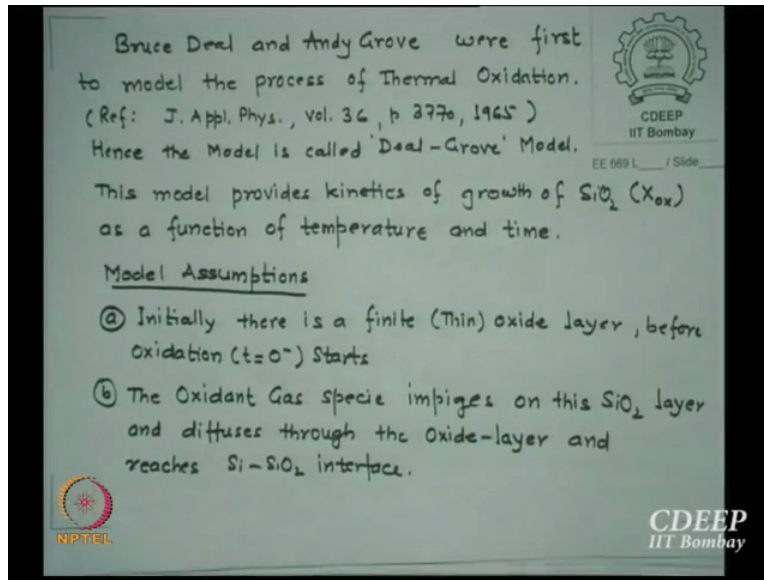 Bruce Deal and Andy Grove were first
to model the process of Thermal Oxidation.
(Ref: J. Appl. Phys., Vol. 36, p 3770, 1965)
Hence the Model is called 'Deal-Grove' Model.
This model provides kinetics of growth of SiO₂ (Xox)
as a function of temperature and time.
Model Assumptions
ⓐ Initially there is a finite (Thin) oxide layer, before
Oxidation (t=0⁻) Starts
ⓑ The Oxidant Gas specie impiges on this SiO₂ layer
and diffuses through the Oxide-layer and
reaches Si-SiO₂ interface.
CDEEP
IIT Bombay
EE 669 L___ / Slide___
NPTEL
CDEEP
IIT Bombay